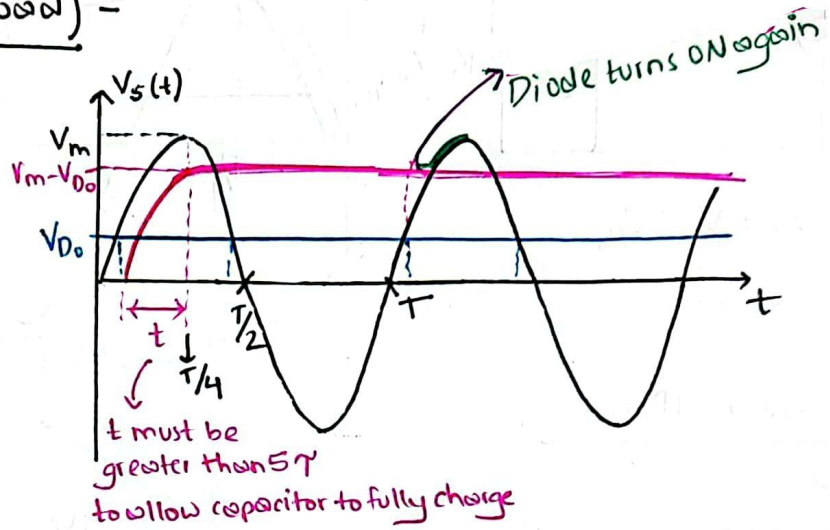 ) –
Vs(t)
Diode turns ON again
Vm
Vm-VDo
VDo
t
T/2
T
t
T/4
t must be
greater than 5τ
to allow capacitor to fully charge